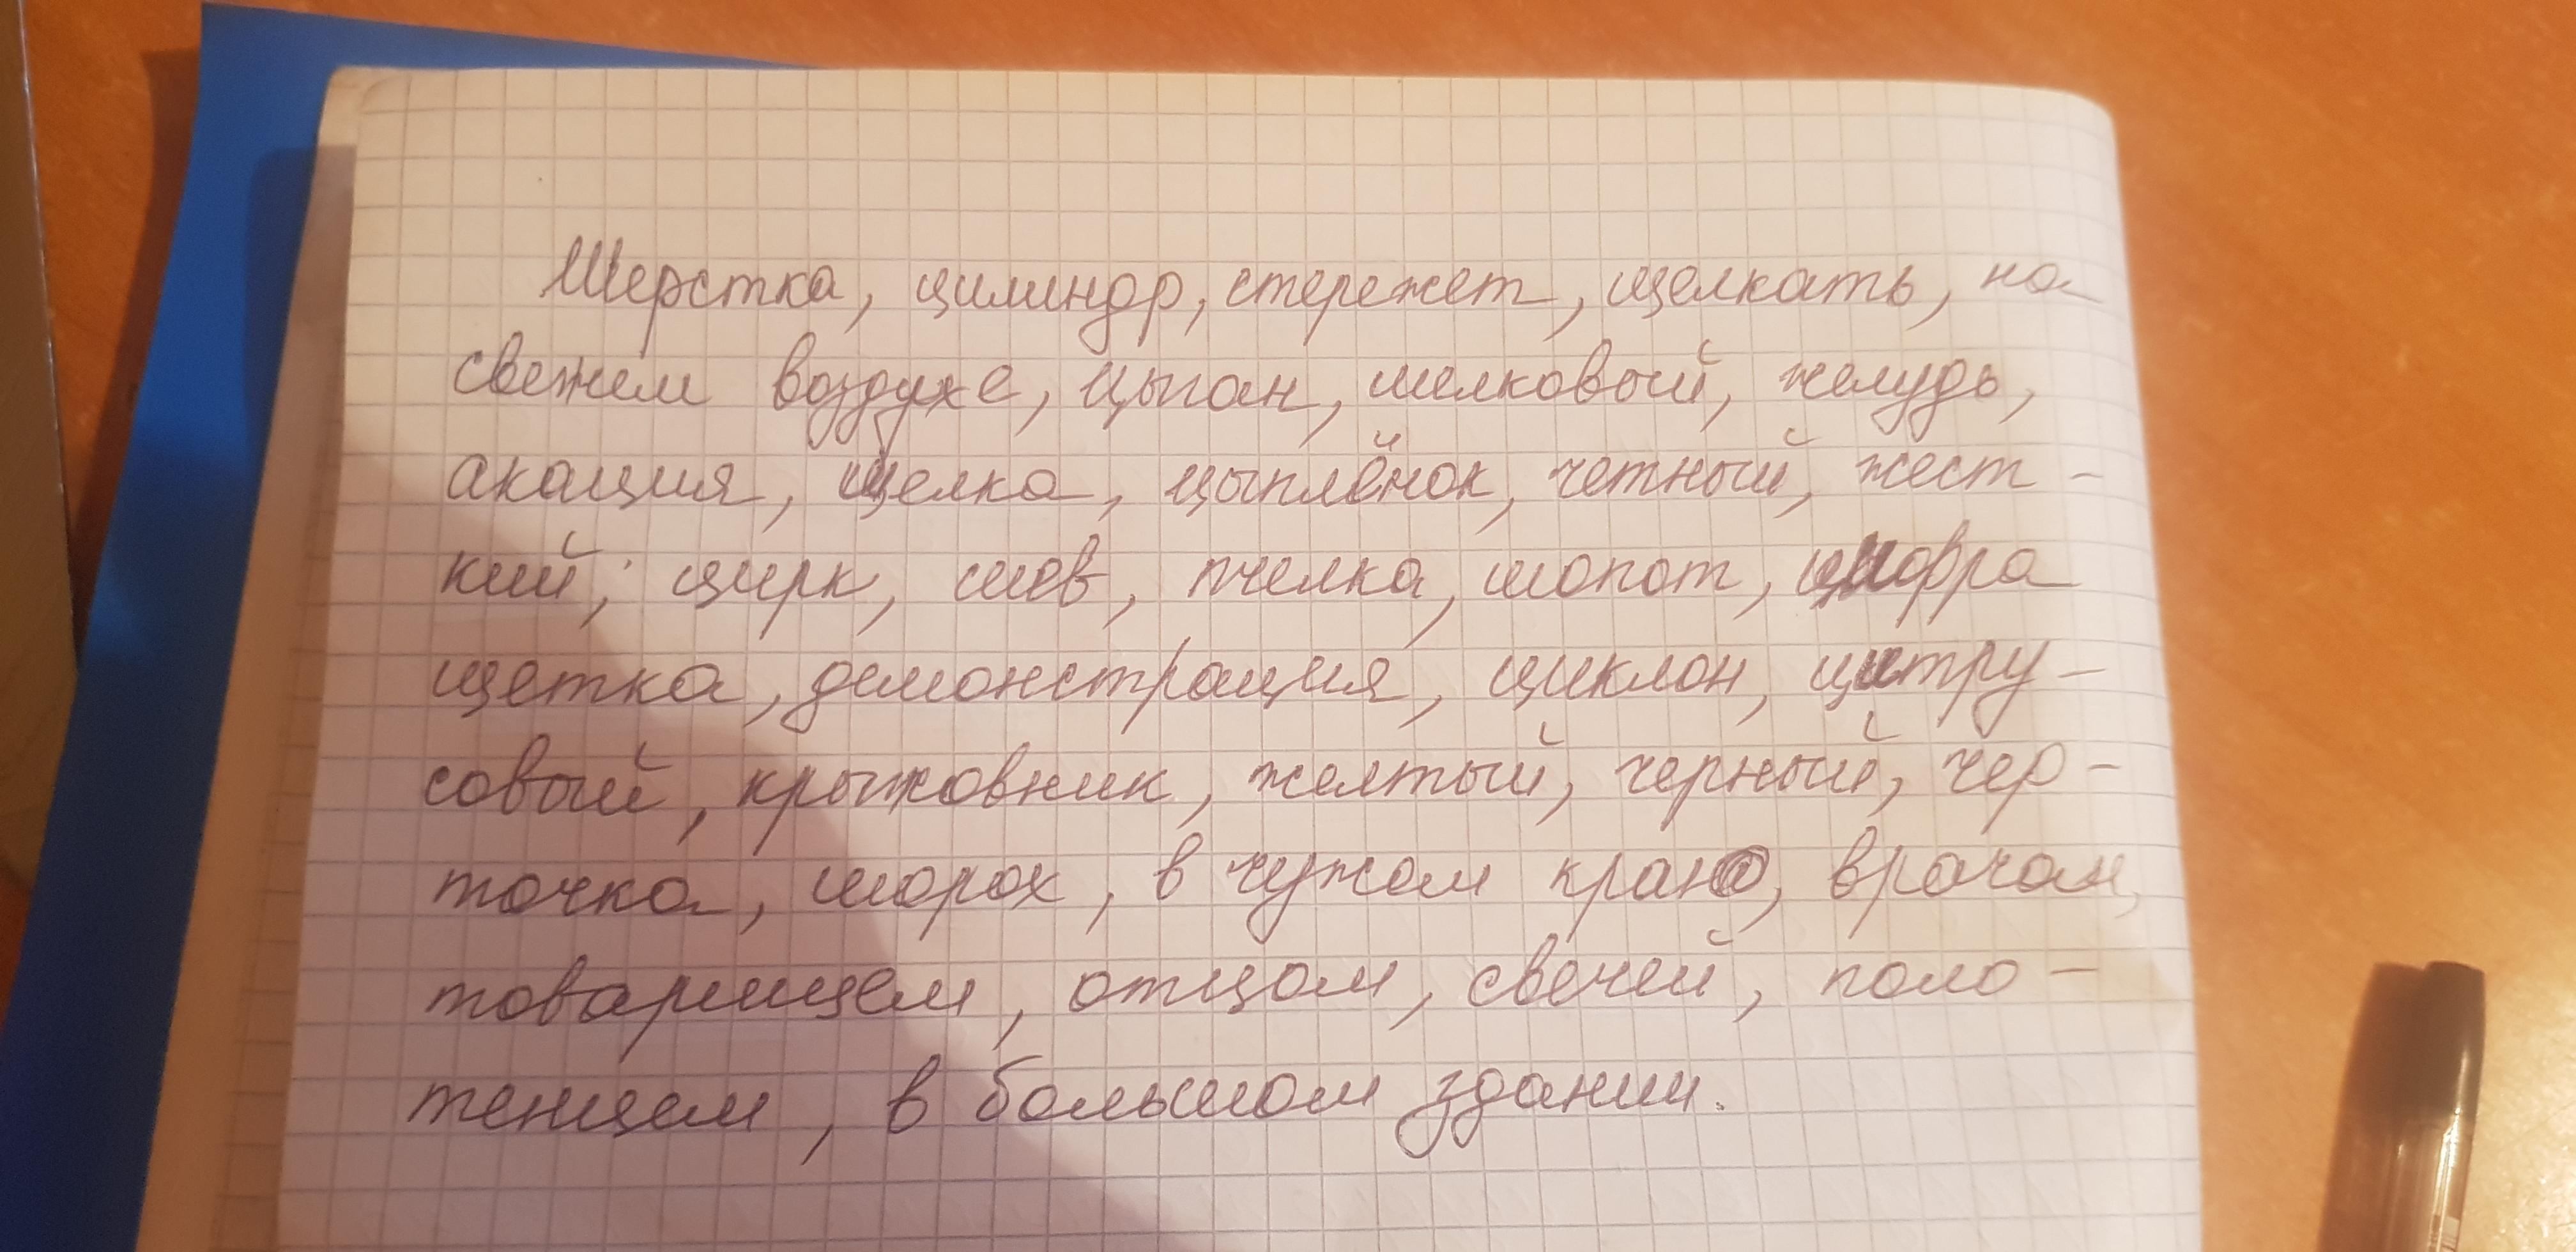 Шерстка, цилиндр, стережет, щелкать, на
свежем воздухе, цыган, шелковый, желудь,
акация, щелка, цыплёнок, четный, жест-
кий; цирк, шов, пчелка, шопот, цифра
щетка, демонстрация, циклон, цитру-
совый, крыжовник, желтый, черный, чер-
точка, шорох, в чужом краю, врачом,
товарищем, отцом, свечей, поло-
тенцем, в большом здании.